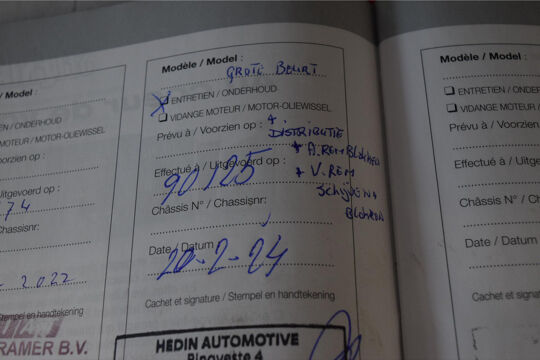 / Model :
EN / ONDERHOUD
MOTEUR / MOTOR-OLIEWISSEL
oorzien op :
Uitgevoerd op :
74
hassisnr:
Datum :
- 2022
Stempel en handtekening
RAMER B.V.
Modèle / Model :
GROTE BEURT
X ENTRETIEN / ONDERHOUD
VIDANGE MOTEUR / MOTOR-OLIEWISSEL
Prévu à / Voorzien op :
DISTRIBUTIE
+ A. REM BLOKKEN
+ V. REM
Schijven
BLOKKEN
Effectué à / Uitgevoerd op :
90125
Châssis N° / Chassisnr:
Date / Datum :
20-2-24
Cachet et signature / Stempel en handtekening
HEDIN AUTOMOTIVE
Ringvette 4
Modèle / Model :
ENTRETIEN / ONDERHOUD
VIDANGE MOTEUR /
Prévu à / Voorzien op :
Effectué à / U
Châssis N° / Cha
Date / Datum :
Cachet et signature